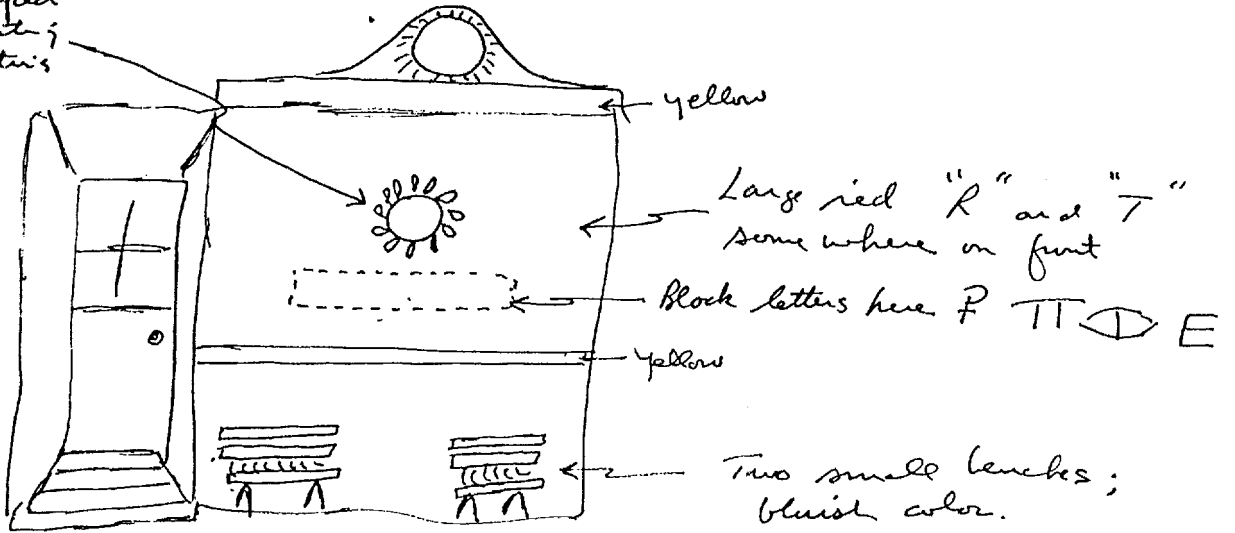 yellow
Large red "R" and "T"
some where on front
Block letters here P Π Φ E
yellow
Two small benches;
bluish color.